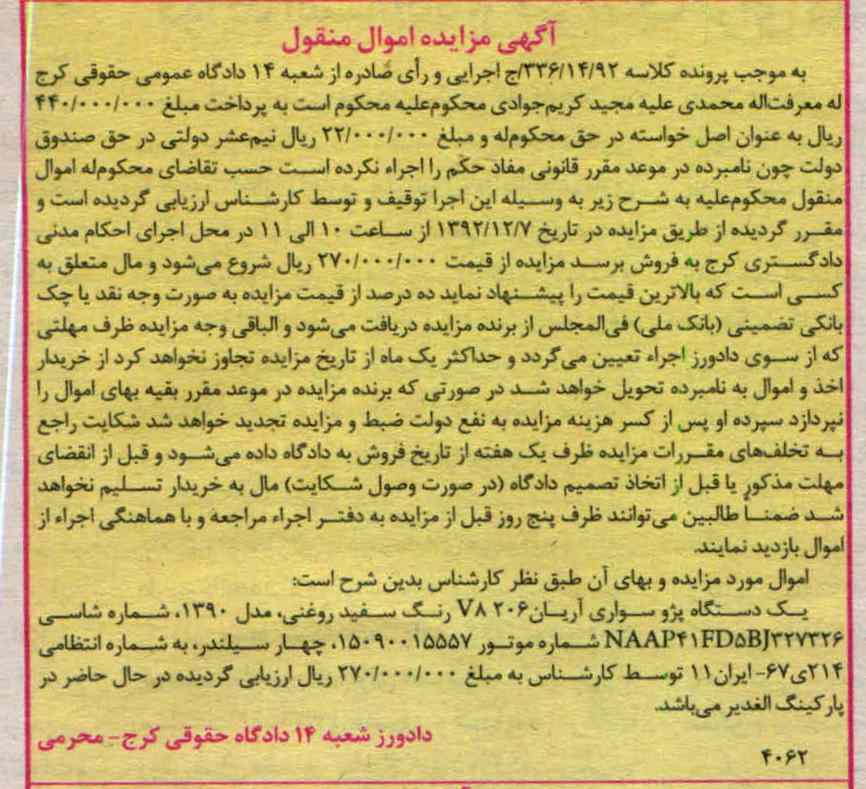 آگهی مزایده اموال منقول
به موجب پرونده کلاسه ۳۳۶/۱۴/۹۲/ج اجرایی و رأی صادره از شعبه ۱۴ دادگاه عمومی حقوقی کرج
له معرفت‌اله محمدی علیه مجید کریم‌جوادی محکوم‌علیه محکوم است به پرداخت مبلغ ۴۴۰/۰۰۰/۰۰۰
ریال به عنوان اصل خواسته در حق محکوم‌له و مبلغ ۲۲/۰۰۰/۰۰۰ ریال نیم‌عشر دولتی در حق صندوق
دولت چون نامبرده در موعد مقرر قانونی مفاد حکم را اجراء نکرده است حسب تقاضای محکوم‌له اموال
منقول محکوم‌علیه به شرح زیر به وسیله این اجرا توقیف و توسط کارشناس ارزیابی گردیده است و
مقرر گردیده از طریق مزایده در تاریخ ۱۳۹۲/۱۲/۷ از ساعت ۱۰ الی ۱۱ در محل اجرای احکام مدنی
دادگستری کرج به فروش برسد مزایده از قیمت ۲۷۰/۰۰۰/۰۰۰ ریال شروع می‌شود و مال متعلق به
کسی است که بالاترین قیمت را پیشنهاد نماید ده درصد از قیمت مزایده به صورت وجه نقد یا چک
بانکی تضمینی (بانک ملی) فی‌المجلس از برنده مزایده دریافت می‌شود و الباقی وجه مزایده ظرف مهلتی
که از سوی دادورز اجراء تعیین می‌گردد و حداکثر یک ماه از تاریخ مزایده تجاوز نخواهد کرد از خریدار
اخذ و اموال به نامبرده تحویل خواهد شد در صورتی که برنده مزایده در موعد مقرر بقیه بهای اموال را
نپردازد سپرده او پس از کسر هزینه مزایده به نفع دولت ضبط و مزایده تجدید خواهد شد شکایت راجع
به تخلف‌های مقررات مزایده ظرف یک هفته از تاریخ فروش به دادگاه داده می‌شود و قبل از انقضای
مهلت مذکور یا قبل از اتخاذ تصمیم دادگاه (در صورت وصول شکایت) مال به خریدار تسلیم نخواهد
شد ضمناً طالبین می‌توانند ظرف پنج روز قبل از مزایده به دفتر اجراء مراجعه و با هماهنگی اجراء از
اموال بازدید نمایند.
اموال مورد مزایده و بهای آن طبق نظر کارشناس بدین شرح است:
یک دستگاه پژو سواری آریان۲۰۶ V۸ رنگ سفید روغنی، مدل ۱۳۹۰، شماره شاسی
NAAP۴۱FD۵BJ۳۲۷۳۲۶ شماره موتور ۱۵۰۹۰۰۱۵۵۵۷، چهار سیلندر، به شماره انتظامی
۲۱۴ی۶۷- ایران۱۱ توسط کارشناس به مبلغ ۲۷۰/۰۰۰/۰۰۰ ریال ارزیابی گردیده در حال حاضر در
پارکینگ الغدیر می‌باشد.
دادورز شعبه ۱۴ دادگاه حقوقی کرج- محرمی
۴۰۶۲